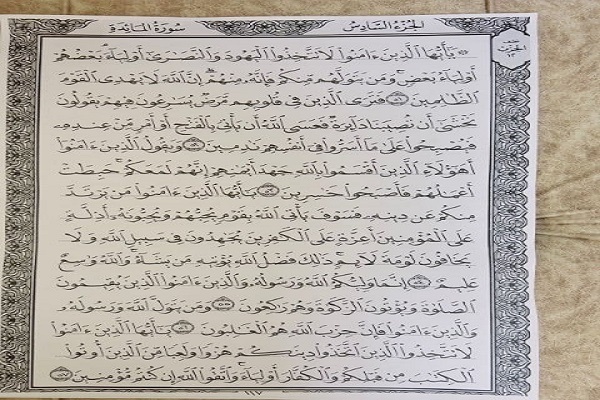 الجزء السادس سورة المائدة
نصف الحزب ١٢
۞ يَٰٓأَيُّهَا ٱلَّذِينَ ءَامَنُوا۟ لَا تَتَّخِذُوا۟ ٱلْيَهُودَ وَٱلنَّصَٰرَىٰٓ أَوْلِيَآءَ بَعْضُهُمْ
أَوْلِيَآءُ بَعْضٍ وَمَن يَتَوَلَّهُم مِّنكُمْ فَإِنَّهُۥ مِنْهُمْ إِنَّ ٱللَّهَ لَا يَهْدِى ٱلْقَوْمَ
ٱلظَّٰلِمِينَ ٥١ فَتَرَى ٱلَّذِينَ فِى قُلُوبِهِم مَّرَضٌ يُسَٰرِعُونَ فِيهِمْ يَقُولُونَ
نَخْشَىٰٓ أَن تُصِيبَنَا دَآئِرَةٌ فَعَسَى ٱللَّهُ أَن يَأْتِىَ بِٱلْفَتْحِ أَوْ أَمْرٍ مِّنْ عِندِهِۦ
فَيُصْبِحُوا۟ عَلَىٰ مَآ أَسَرُّوا۟ فِىٓ أَنفُسِهِمْ نَٰدِمِينَ ٥٢ وَيَقُولُ ٱلَّذِينَ ءَامَنُوٓا۟
أَهَٰٓؤُلَآءِ ٱلَّذِينَ أَقْسَمُوا۟ بِٱللَّهِ جَهْدَ أَيْمَٰنِهِمْ إِنَّهُمْ لَمَعَكُمْ حَبِطَتْ
أَعْمَٰلُهُمْ فَأَصْبَحُوا۟ خَٰسِرِينَ ٥٣ يَٰٓأَيُّهَا ٱلَّذِينَ ءَامَنُوا۟ مَن يَرْتَدَّ
مِنكُمْ عَن دِينِهِۦ فَسَوْفَ يَأْتِى ٱللَّهُ بِقَوْمٍ يُحِبُّهُمْ وَيُحِبُّونَهُۥٓ أَذِلَّةٍ
عَلَى ٱلْمُؤْمِنِينَ أَعِزَّةٍ عَلَى ٱلْكَٰفِرِينَ يُجَٰهِدُونَ فِى سَبِيلِ ٱللَّهِ وَلَا
يَخَافُونَ لَوْمَةَ لَآئِمٍ ذَٰلِكَ فَضْلُ ٱللَّهِ يُؤْتِيهِ مَن يَشَآءُ وَٱللَّهُ وَٰسِعٌ
عَلِيمٌ ٥٤ إِنَّمَا وَلِيُّكُمُ ٱللَّهُ وَرَسُولُهُۥ وَٱلَّذِينَ ءَامَنُوا۟ ٱلَّذِينَ يُقِيمُونَ
ٱلصَّلَوٰةَ وَيُؤْتُونَ ٱلزَّكَوٰةَ وَهُمْ رَٰكِعُونَ ٥٥ وَمَن يَتَوَلَّ ٱللَّهَ وَرَسُولَهُۥ
وَٱلَّذِينَ ءَامَنُوا۟ فَإِنَّ حِزْبَ ٱللَّهِ هُمُ ٱلْغَٰلِبُونَ ٥٦ يَٰٓأَيُّهَا ٱلَّذِينَ ءَامَنُوا۟
لَا تَتَّخِذُوا۟ ٱلَّذِينَ ٱتَّخَذُوا۟ دِينَكُمْ هُزُوًا وَلَعِبًا مِّنَ ٱلَّذِينَ أُوتُوا۟
ٱلْكِتَٰبَ مِن قَبْلِكُمْ وَٱلْكُفَّارَ أَوْلِيَآءَ وَٱتَّقُوا۟ ٱللَّهَ إِن كُنتُم مُّؤْمِنِينَ ٥٧
١١٧